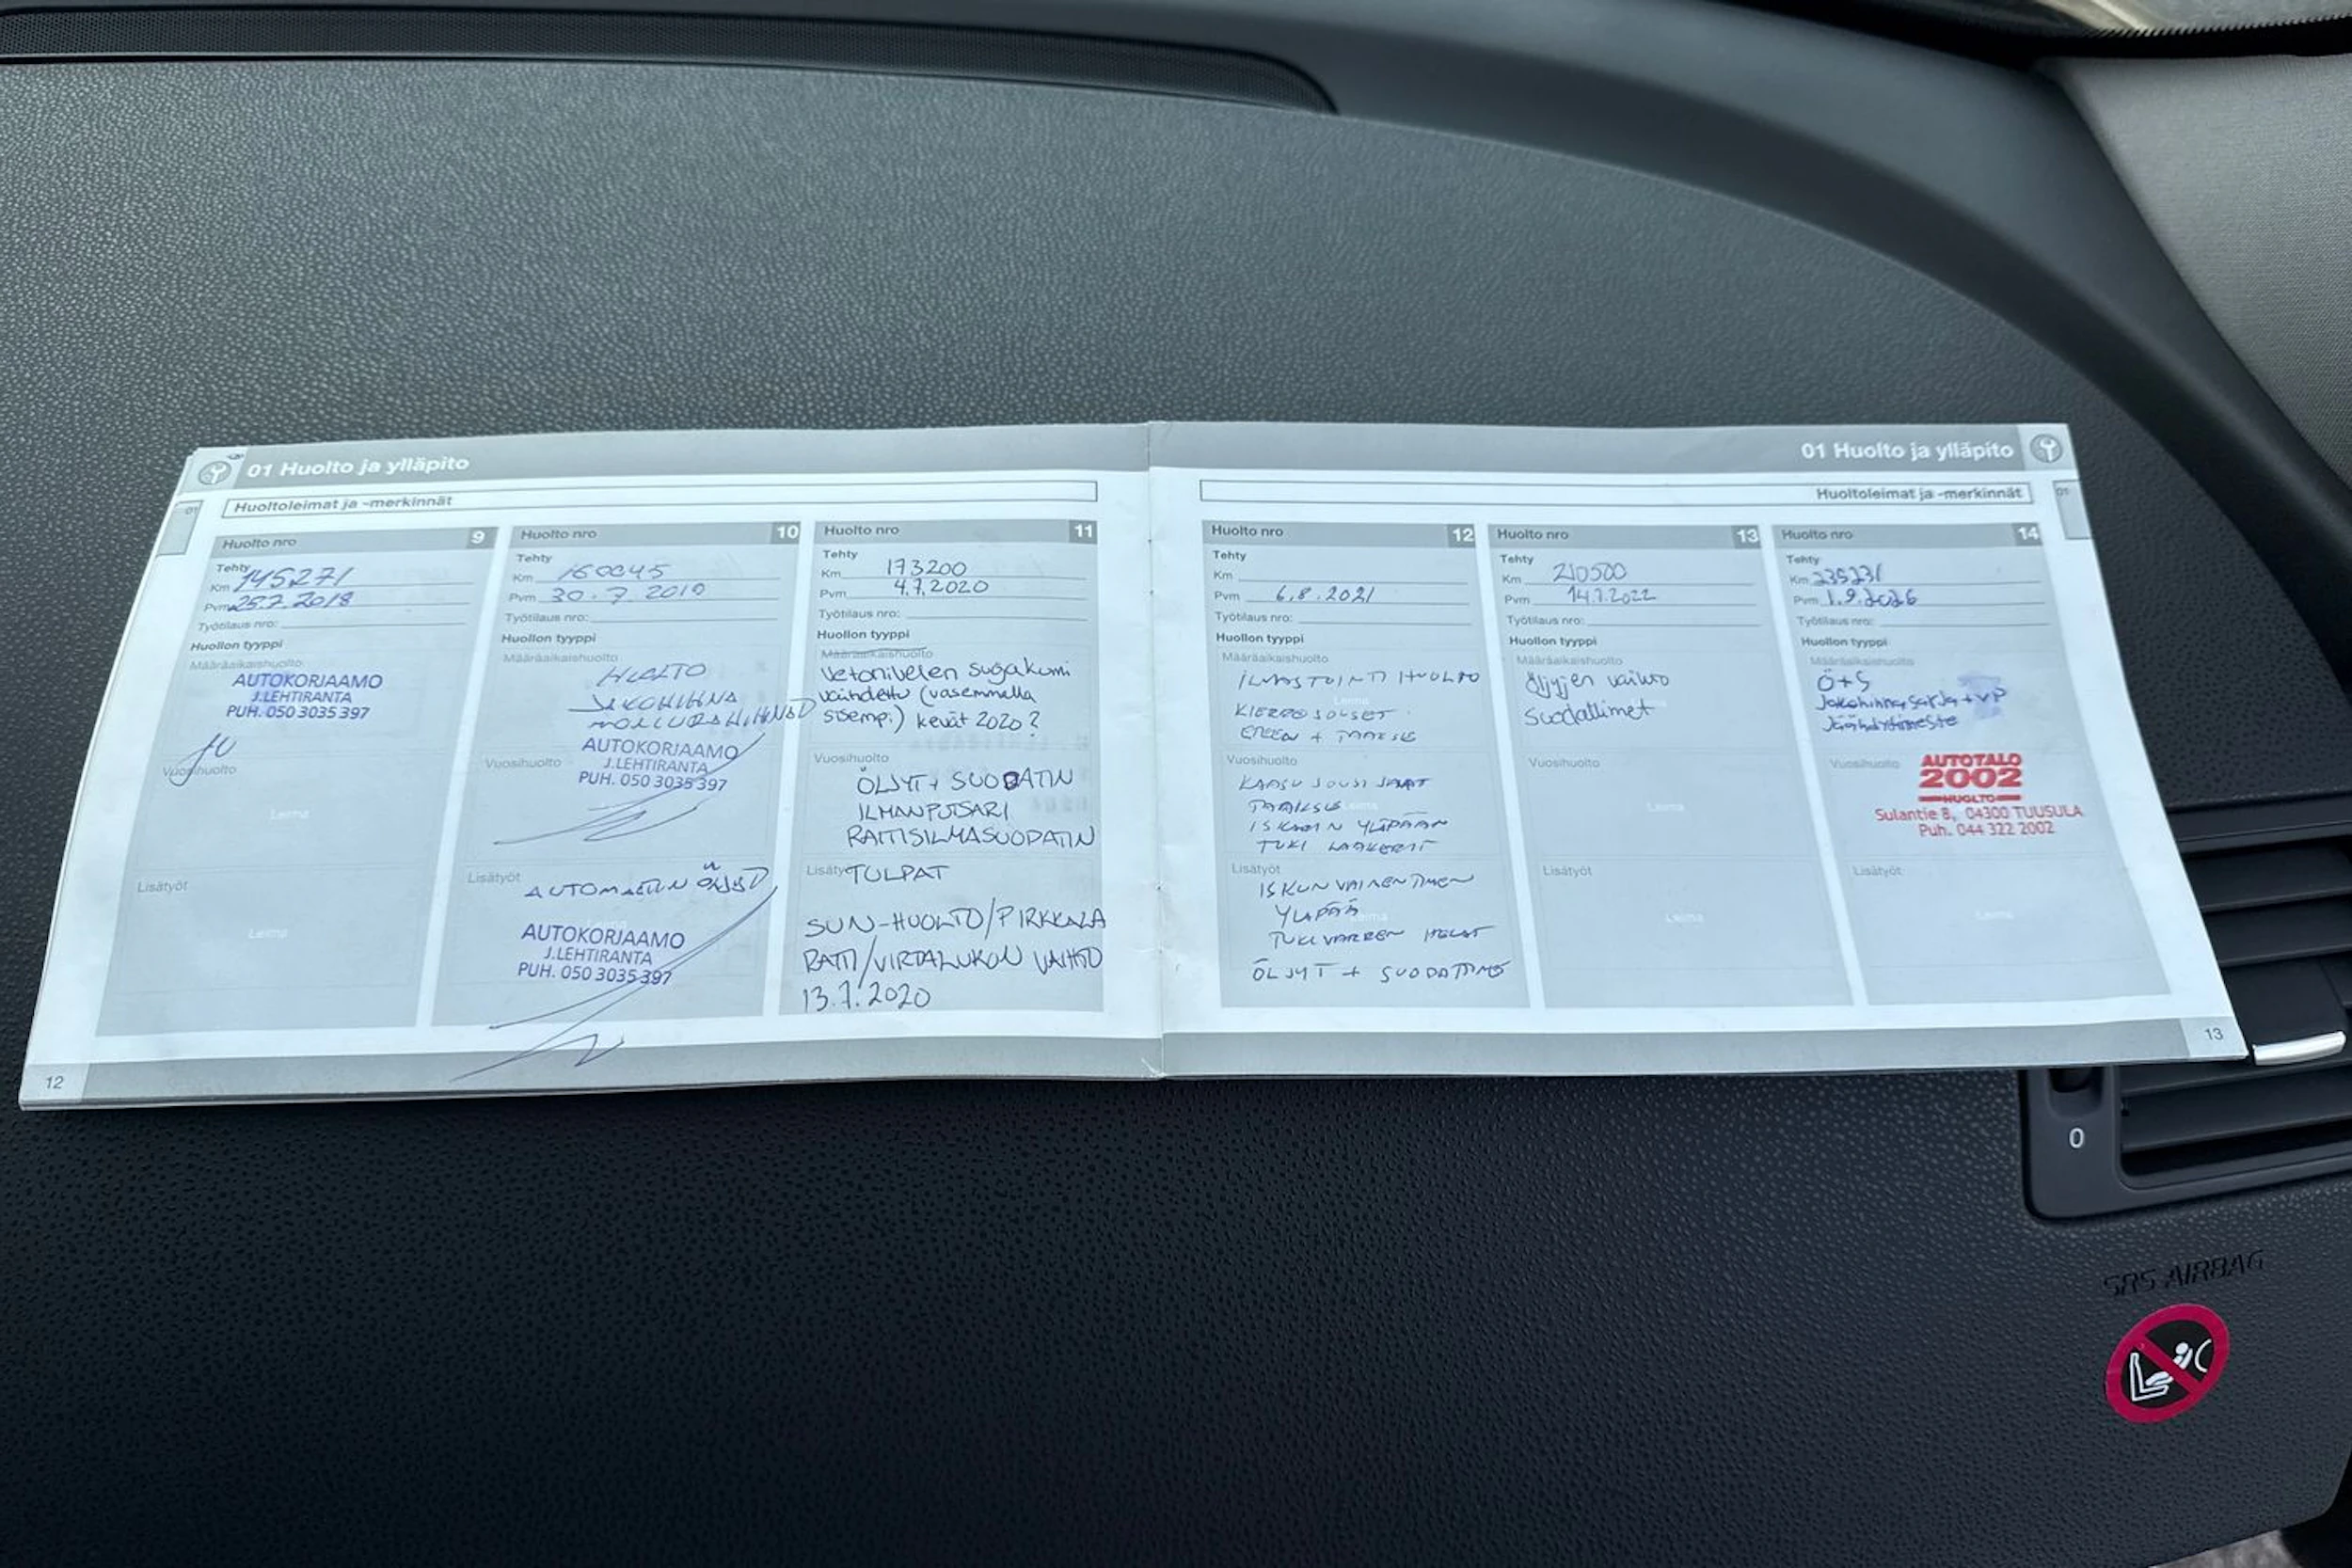 01 Huolto ja ylläpito
01
Huoltoleimat ja -merkinnät
Huolto nro 9
Tehty
Km 145271
Pvm 25.7.2018
Työtilaus nro:
Huollon tyyppi
Määräaikaishuolto
AUTOKORJAAMO
J.LEHTIRANTA
PUH. 050 3035 397
Vuosihuolto
Leima
Lisätyöt
Leima
Huolto nro 10
Tehty
Km 160045
Pvm 30.7.2019
Työtilaus nro:
Huollon tyyppi
Määräaikaishuolto
HUOLTO
JAKOHIHNA
Vuosihuolto
AUTOKORJAAMO
J.LEHTIRANTA
PUH. 050 3035 397
Lisätyöt
AUTOMAATIN ÖLJYT
Leima
AUTOKORJAAMO
J.LEHTIRANTA
PUH. 050 3035 397
Huolto nro 11
Tehty
Km 173200
Pvm 4.7.2020
Työtilaus nro:
Huollon tyyppi
Määräaikaishuolto
Vetonivelen suojakumi
vaihdettu (vasemmalla
sisempi) kevät 2020?
Vuosihuolto
ÖLJYT + SUODATIN
ILMANPUTSARI
RAITISILMASUODATIN
Lisätyöt TULPAT
SUN-HUOLTO/PIRKKALA
RATTI/VIRTALUKON VAIHTO
13.7.2020
12
01 Huolto ja ylläpito
01
Huoltoleimat ja -merkinnät
Huolto nro 12
Tehty
Km
Pvm 6.8.2021
Työtilaus nro:
Huollon tyyppi
Määräaikaishuolto
ILMASTOINTI HUOLTO
Leima
KIERREJOUSET
ETEEN + TAAKSE
Vuosihuolto
KAASU JOUSI
TAAKSE
Leima
ISKARIN YLÄPÄÄN
TUKI LAAKERIT
Lisätyöt
ISKUNVAIMENTIMEN
YLÄPÄÄ
Leima
TUKIVARREN
ÖLJYT + SUODATTIMET
Huolto nro 13
Tehty
Km 210500
Pvm 14.7.2022
Työtilaus nro:
Huollon tyyppi
Määräaikaishuolto
Öljyjen vaihto
suodattimet
Vuosihuolto
Leima
Lisätyöt
Leima
Huolto nro 14
Tehty
Km 235231
Pvm 1.9.2026
Työtilaus nro:
Huollon tyyppi
Määräaikaishuolto
Ö+S
Jakohihnasarja + VP
Jäähdytinneste
Vuosihuolto
AUTOTALO
2002
HUOLTO
Sulantie 8, 04300 TUUSULA
Puh. 044 322 2002
Lisätyöt
Leima
13
0
SRS AIRBAG